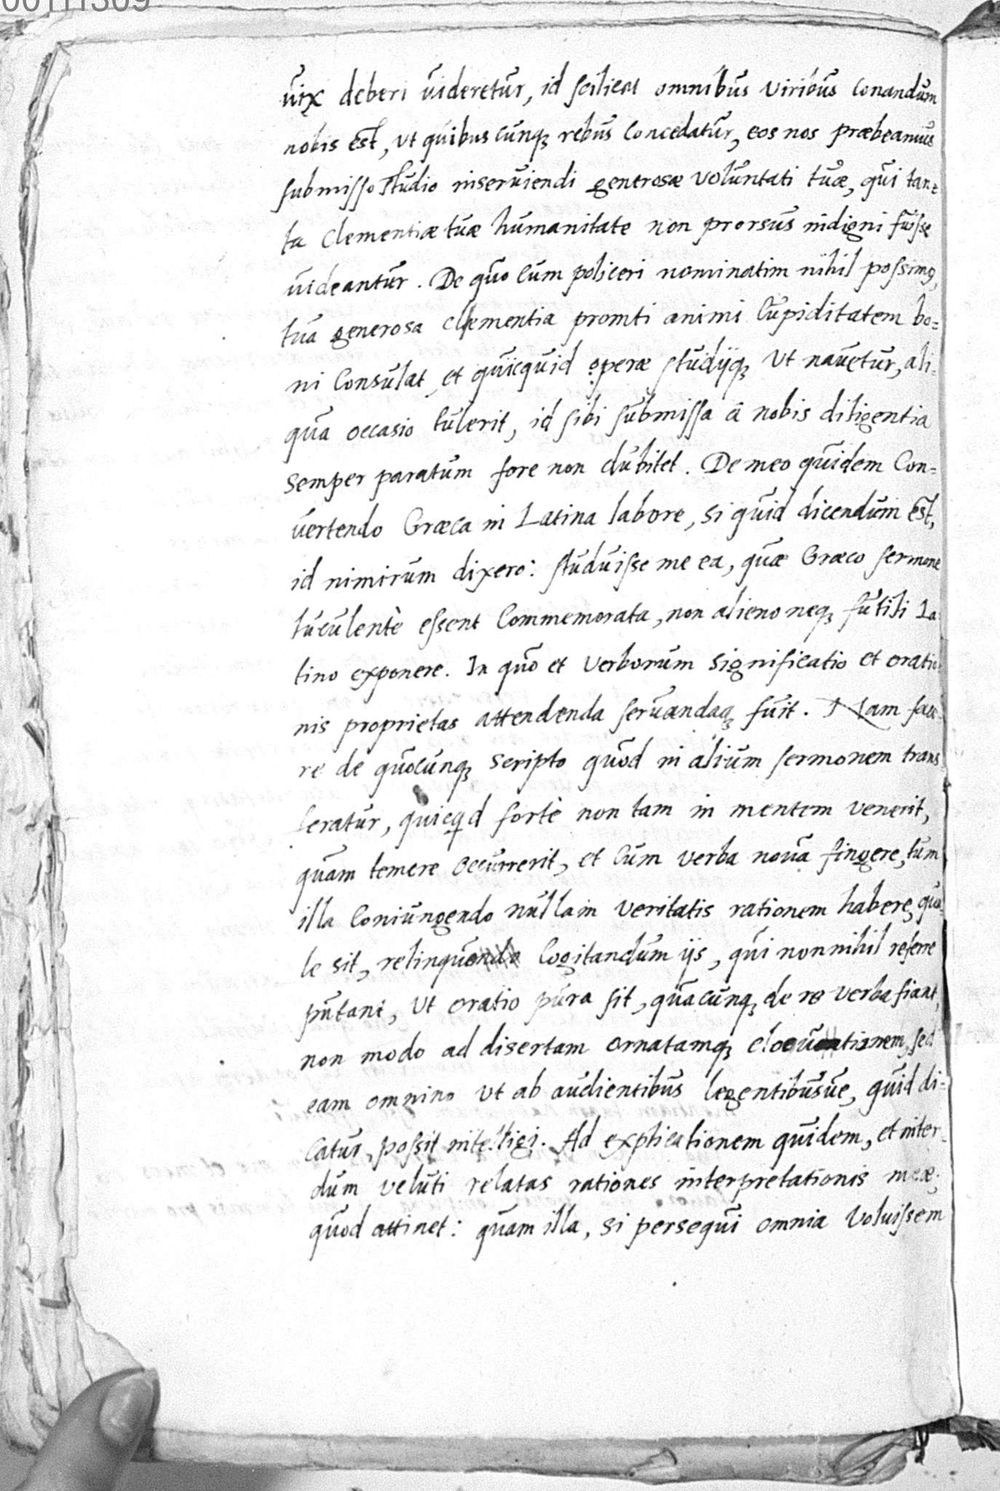 00111309
uix deberi uideretur, id scilicet omnibus viribus conandum
nobis est, ut quibuscunq; rebus concedatur, eos nos præbeamus
submisso studio inseruiendi generosæ voluntati tuæ, qui tan=
ta clementiæ tuæ humanitate non prorsus indigni fuisse
uideantur. De quo cum polliceri nominatim nihil possimq,
tua generosa clementia promti animi cupiditatem bo=
ni consulat, et quicquid operæ studijq; ut nauetur, ali=
qua occasio tulerit, id sibi submissa à nobis diligentia
semper paratum fore non dubitet. De meo quidem con=
uertendo Græca in Latina labore, si quid dicendum est,
id nimirum dixero: studuisse me ea, quæ Græco sermone
luculentè essent commemorata, non alieno neq; futili La=
tino exponere. In quo et verborum significatio et oratio
nis proprietas attendenda seruandaq; fuit. Nam face=
re de quocunq; scripto quod in alium sermonem trans
feratur, quicqd fortè non tam in mentem venerit,
quam temere occurrerit, et cum verba noua fingere, tum
illa coniungendo nullam veritatis rationem habere, qua
le sit, relinquo cogitandum ijs, qui nonnihil referre
putant, ut oratio pura sit, quacunq; de re verba fiant,
non modo ad disertam ornatamq; elocutionem, sed
eam omnino ut ab audientibus legentibusue, quid di=
catur, possit intelligi. Ad explicationem quidem, et inter=
dum veluti relatas rationes interpretationis meæ
quod attinet: quam illa, si persequi omnia voluissem